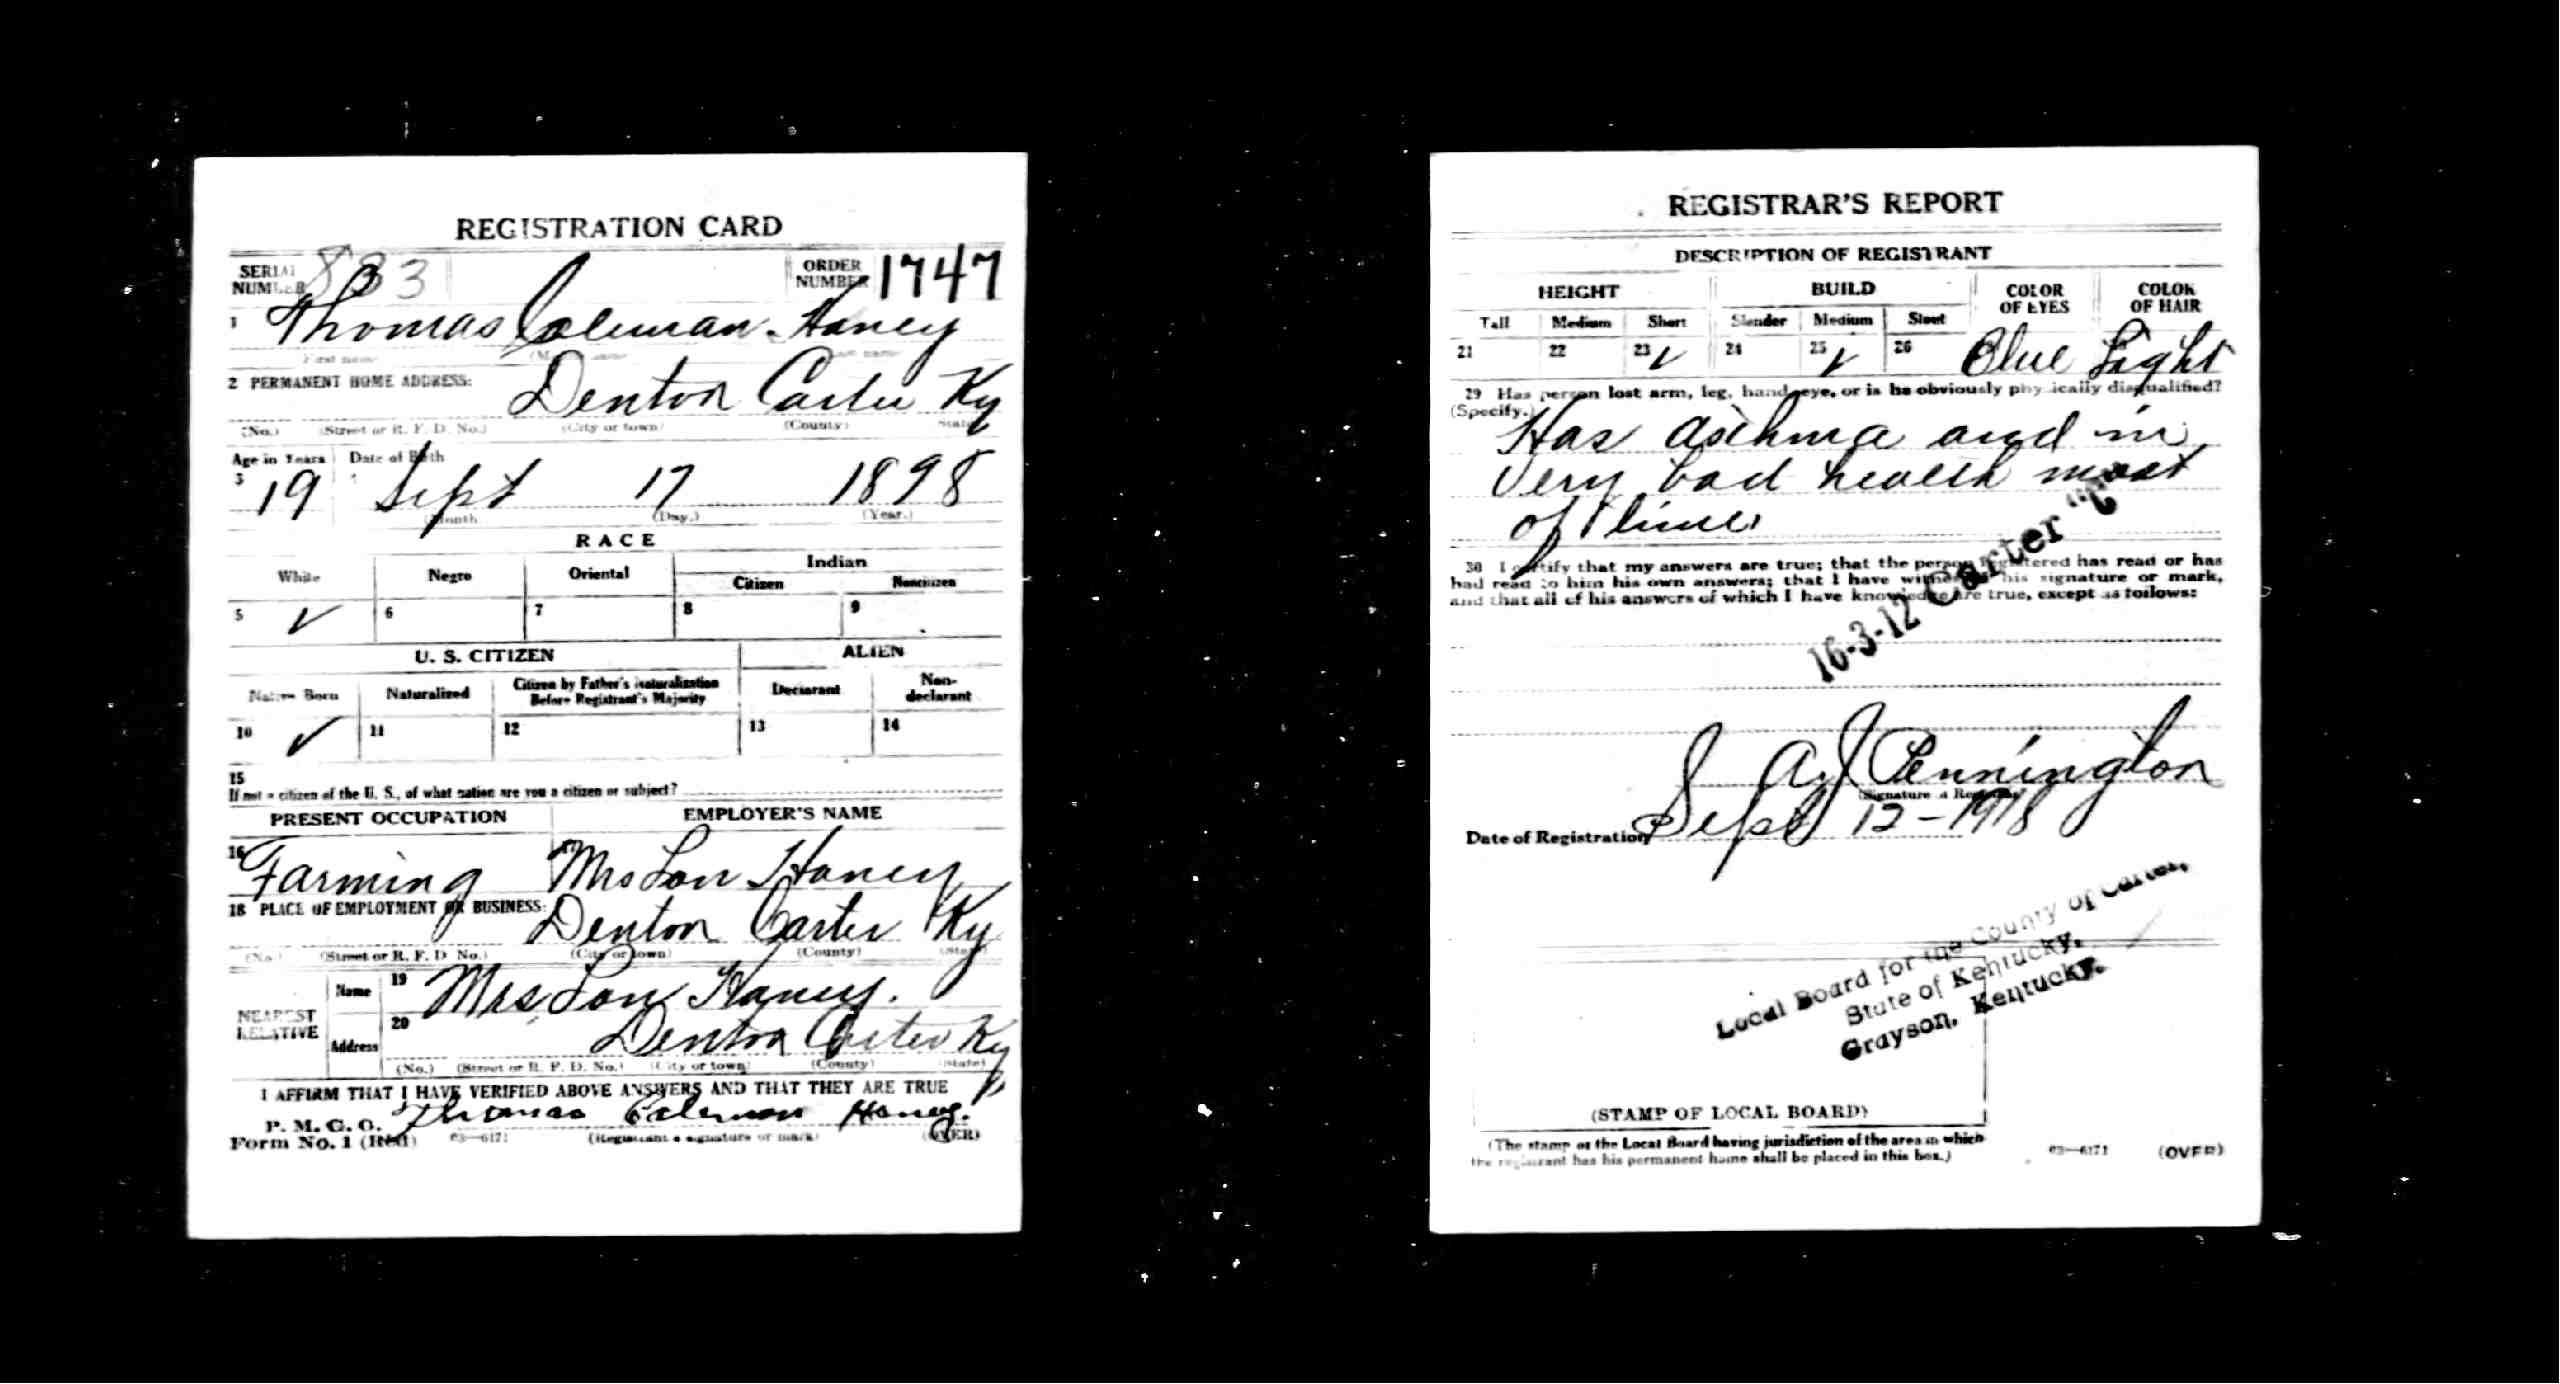 REGISTRATION CARD
SERIAL NUMBER 833 ORDER NUMBER 1747
1 Thomas Coleman Haney
First name
2 PERMANENT HOME ADDRESS:
Denton Carter Ky
(No.) (Street or R. F. D. No.) (City or town) (County) State
Age in Years Date of Birth
3 19 Sept 17 1898
Month (Day.) (Year.)
RACE
White Negro Oriental Indian
Citizen Noncitizen
5 ✓ 6 7 8 9
U. S. CITIZEN ALIEN
Native Born Naturalized Citizen by Father's Naturalization Before Registrant's Majority Declarant Non-declarant
10 ✓ 11 12 13 14
15
If not a citizen of the U. S., of what nation are you a citizen or subject?
PRESENT OCCUPATION EMPLOYER'S NAME
16 Farming Mrs Lou Haney
18 PLACE OF EMPLOYMENT OR BUSINESS:
Denton Carter Ky
(No.) (Street or R. F. D. No.) (City or town) (County) (State)
NEAREST RELATIVE
Name 19 Mrs Lou Haney.
Address 20 Denton Carter Ky
(No.) (Street or R. F. D. No.) (City or town) (County) (State)
I AFFIRM THAT I HAVE VERIFIED ABOVE ANSWERS AND THAT THEY ARE TRUE
P. M. G. O.
Form No. 1 (Red) 03—6171 Thomas Coleman Haney.
(Registrant's signature or mark) (OVER)
REGISTRAR'S REPORT
DESCRIPTION OF REGISTRANT
HEIGHT BUILD COLOR OF EYES COLOR OF HAIR
Tall Medium Short Slender Medium Stout
21 22 23 ✓ 24 25 ✓ 26 Blue Light
29 Has person lost arm, leg, hand, eye, or is he obviously physically disqualified?
(Specify.)
Has asthma and in
very bad health most
of time
30 I certify that my answers are true; that the person registered has read or has
had read to him his own answers; that I have witnessed his signature or mark,
and that all of his answers of which I have knowledge are true, except as follows:
16-3-12 Carter "C"
A J Pennington
(Signature of Registrar)
Date of Registration Sept 12-1918
Local Board for the County of Carter,
State of Kentucky,
Grayson, Kentucky.
(STAMP OF LOCAL BOARD)
(The stamp of the Local Board having jurisdiction of the area in which
the registrant has his permanent home shall be placed in this box.)
03—6171 (OVER)